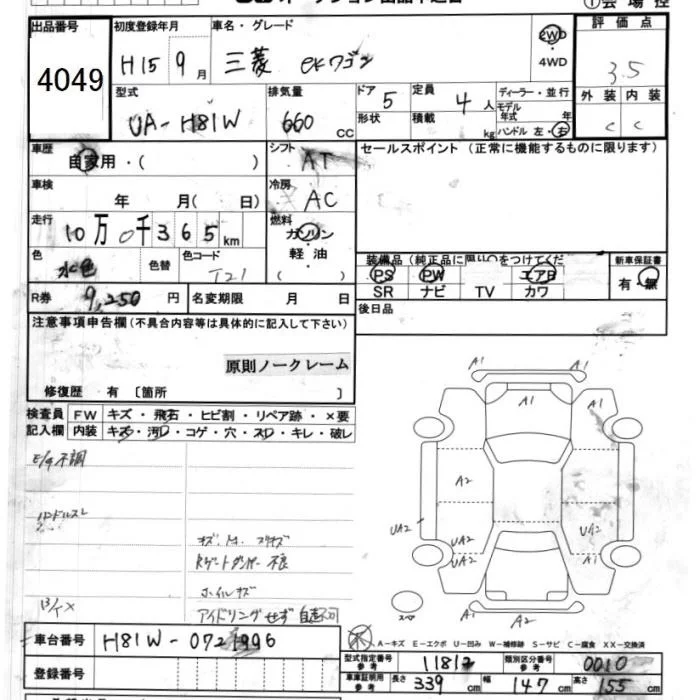 出品番号 初度登録年月 車名・グレード 評価点
4049 H15 9月 三菱 ekワゴン 2WD ・ 4WD 3.5
型式 排気量 ドア 5 定員 4人 ディーラー・並行 外装 内装
UA-H81W 660 cc 形状 積載 kg モデル年式 年 C C
ハンドル 左・右
車歴 自家用・( ) シフト AT セールスポイント(正常に機能するものに限ります)
車検 年 月(日) 冷房 AC
走行 10万0千365km 燃料 ガソリン
軽油
( )
色 水色 色替 色コード T21
装備品(純正品に限り○をつけてくだ 新車保証書
PS PW エアB 有・無
SR ナビ TV カワ
R券 9,250円 名変期限 月 日 後日品
注意事項申告欄(不具合内容等は具体的に記入して下さい)
原則ノークレーム
修復歴・有〔箇所 〕
検査員 FW キズ・飛石・ヒビ割・リペア跡・×要
記入欄 内装 キズ・汚れ・コゲ・穴・スレ・キレ・破レ
A1 A1
A1 A1
E/G不調
A2
ハンドルスレ
UA2 UA2 UA2
Rゲートダンパー不良
UA2 A1
ホイルキズ
アイドリングせず 自走不可
スペア
A1 A2
車台番号 H81W-0721996
A-キズ E-エクボ U-凹み W-補修跡 S-サビ C-腐食 XX-交換済
型式指定番号 参考 11812 類別区分番号 参考 0010
登録番号 車庫証明用 参考 長さ 339cm 幅 147cm 高さ 155cm